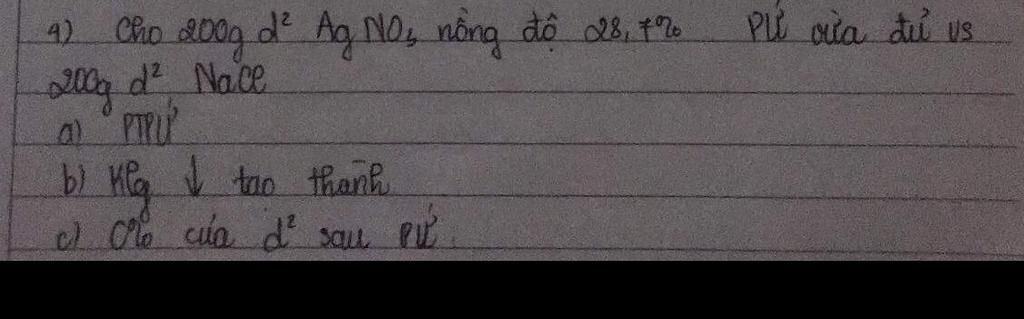 9) Cho 200g d² AgNO₃ nồng độ 28,7% PƯ vừa đủ vs
200g d² NaCl
a) PTPƯ
b) Klg ↓ tạo thành
c) C% của d² sau PƯ.